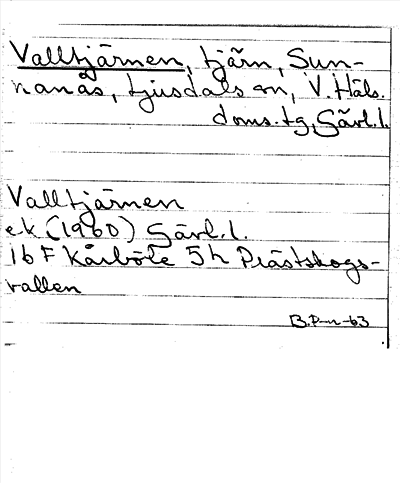 Valltjärnen, tjärn, Sun-
nanås, Ljusdals sn, V. Häls.
doms.tg, Gävl.l.
Valltjärnen
ek (1960) Gävl.l.
16 F Kårböle 5h Prästskogs-
vallen
B.P-n-63